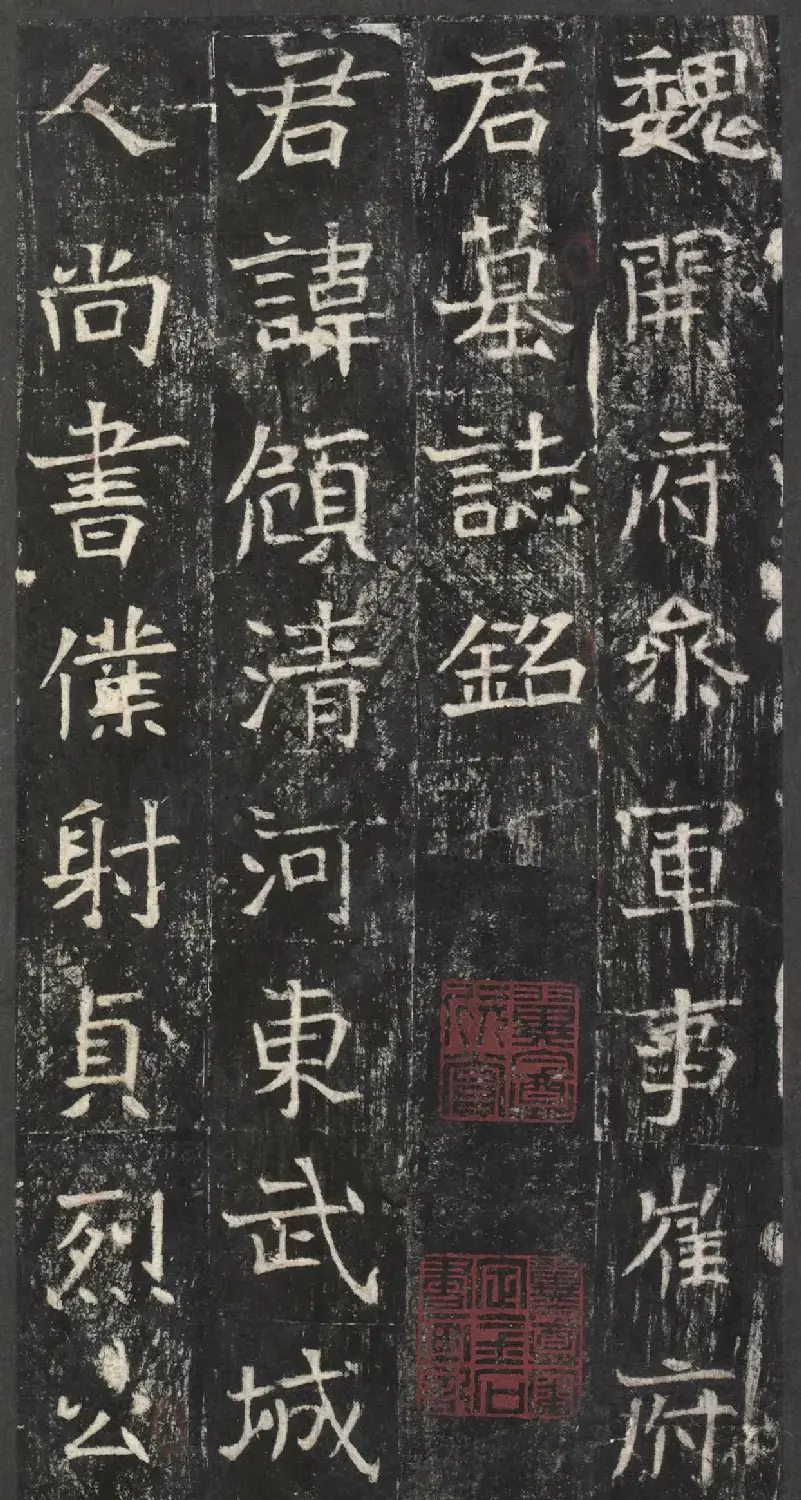 魏開府叅軍事崔府
君墓誌銘
君諱頠清河東武城
人尚書僕射貞烈公